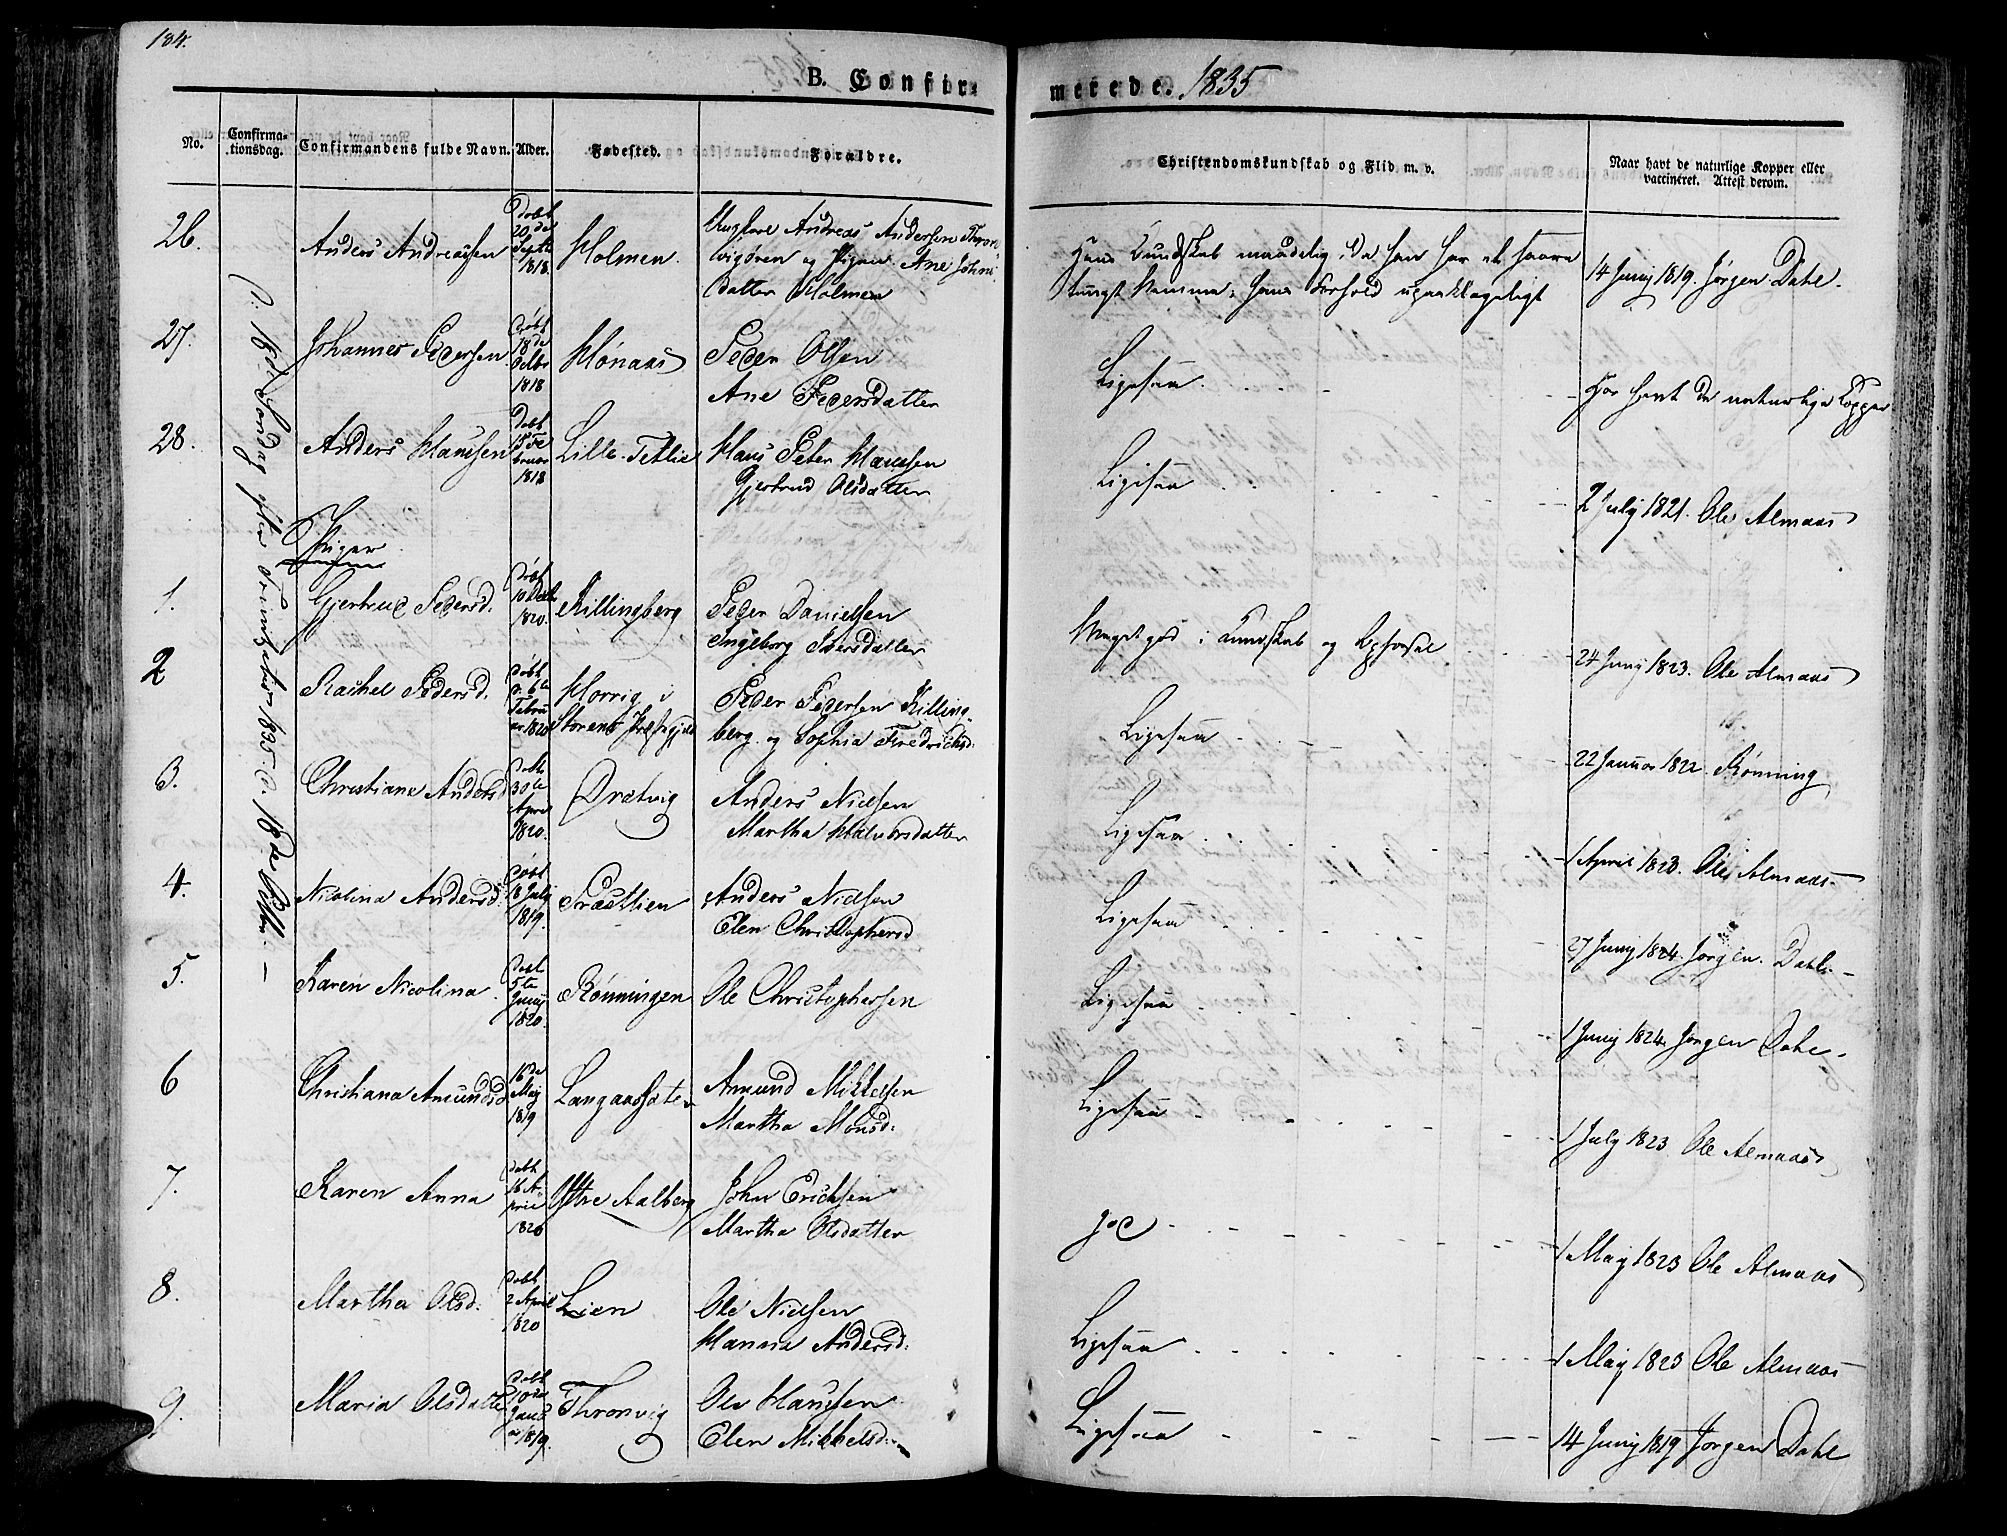 184.
B. Confir
merede. 1835
No.
Confirma-
tionsdag.
Confirmandens fulde Navn.
Alder.
Fødested.
Forældre.
Christendomskundskab og Flid m. v.
Naar havt de naturlige Kopper eller
vaccineret. Attest derom.
18de Søndag efter Trinitatis 1835. d. 18de Octbr. —
26.
Anders Andreassen
Døbt
20de
Septb
1818.
Holmen.
Ungkarl Andreas Andersen Thron
vigøren og Pigen Ane Johns
datter Holmen
Hans Kundskab maadelig, da han har et saare
tungt Nemme, hans Forhold upaaklageligt
14 Junij 1819. Jørgen Dahl.
27.
Johannes Pedersen
Døbt
18de
Octbr
1818
Hónaas
Peder Olsen
Ane Pedersdatter
Ligesaa
Har havt de naturlige Kopper
28.
Anders Hansen
Døbt
15 Fe
bruar
1818
Lille-Tetlie
Hans Peter Hansen
Gjertrud Olsdatter
Ligesaa
2 July 1821. Ole Almaas
Piger
1.
Gjertrud Pedersd.
Døbt
10 Decbr
1820.
Killingberg
Peder Danielsen
Ingeborg Iversdatter
Meget god i Kundskab og Opførsel
24 Junij 1823. Ole Almaas
2
Rachel Pedersd.
Døbt
d. 6te
Febru
ar 1820
Horrig i
Størens Præstegjeld
Peder Pedersen Killing-
berg og Sophia Fredrichsd.
Ligesaa
22 Januar 1822. Rønning
3.
Christiana Andersd
Døbt
30te
April
1820.
Drætvig
Anders Nielsen
Martha Halvorsdatter
Ligesaa
1 April 1823. Ole Almaas
4.
Nicolina Andersd.
Døbt
8 July
1819.
Præstlien
Anders Nielsen
Elen Christophersd
Ligesaa
27 Junij 1824. Jørgen Dahl
5.
Karen Nicolina
Døbt
5te
Junij
1820.
Rønningen
Ole Christophersen
Ligesaa
1 Junij 1824. Jørgen Dahl
6
Christiana Amundsd
16de
Maij
1819
Langaassæter
Amund Mikkelsen
Martha Monsd.
Ligesaa
1 July 1823 Ole Almaas
7.
Karen Anna
Døbt
16 A-
pril
1820
Østre Aalberg
John Erichsen
Martha Olsdatter
god
1 Maij 1823 Ole Almaas
8.
Martha Olsd.
Døbt
2 April
1820
Lien
Ole Nielsen
Hanna Andersd.
Ligesaa
1 Maij 1823 Ole Almaas
9.
Maria Olsdatter
Døbt
10de
Janu
ar 1819.
Thronvig
Ole Hansen
Elen Mikkelsd.
Ligesaa
14 Junij 1819 Jørgen Dahl